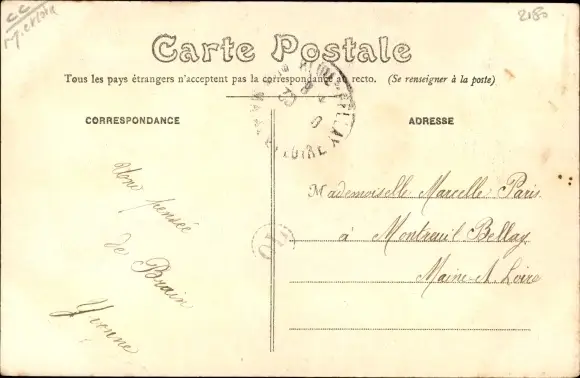 CC
M. et Loire
2180
Carte Postale
Tous les pays étrangers n'acceptent pas la correspondance au recto. (Se renseigner à la poste)
CORRESPONDANCE
ADRESSE
Une pensée
de Brain
Yvonne
Mademoiselle Marcelle Paris
à Montreuil Bellay
Maine-et-Loire